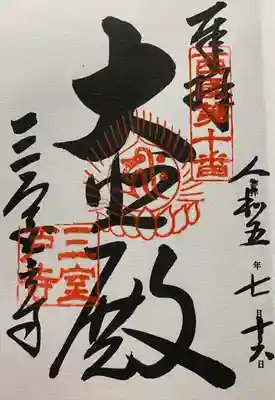 奉拝
西国第十番
令和五年七月十六日
大悲殿
三室戸寺
三室戸寺